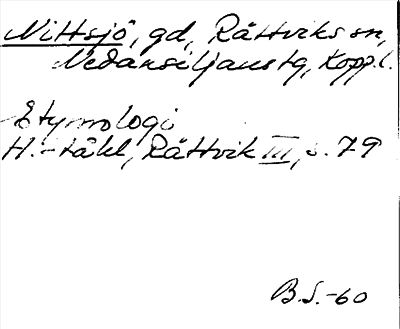 Nittsjö, gd, Rättviks sn,
Nedansiljans tg, Kopp.l.
Etymologi
H. Ståhl, Rättvik III, s. 79
B.S.-60